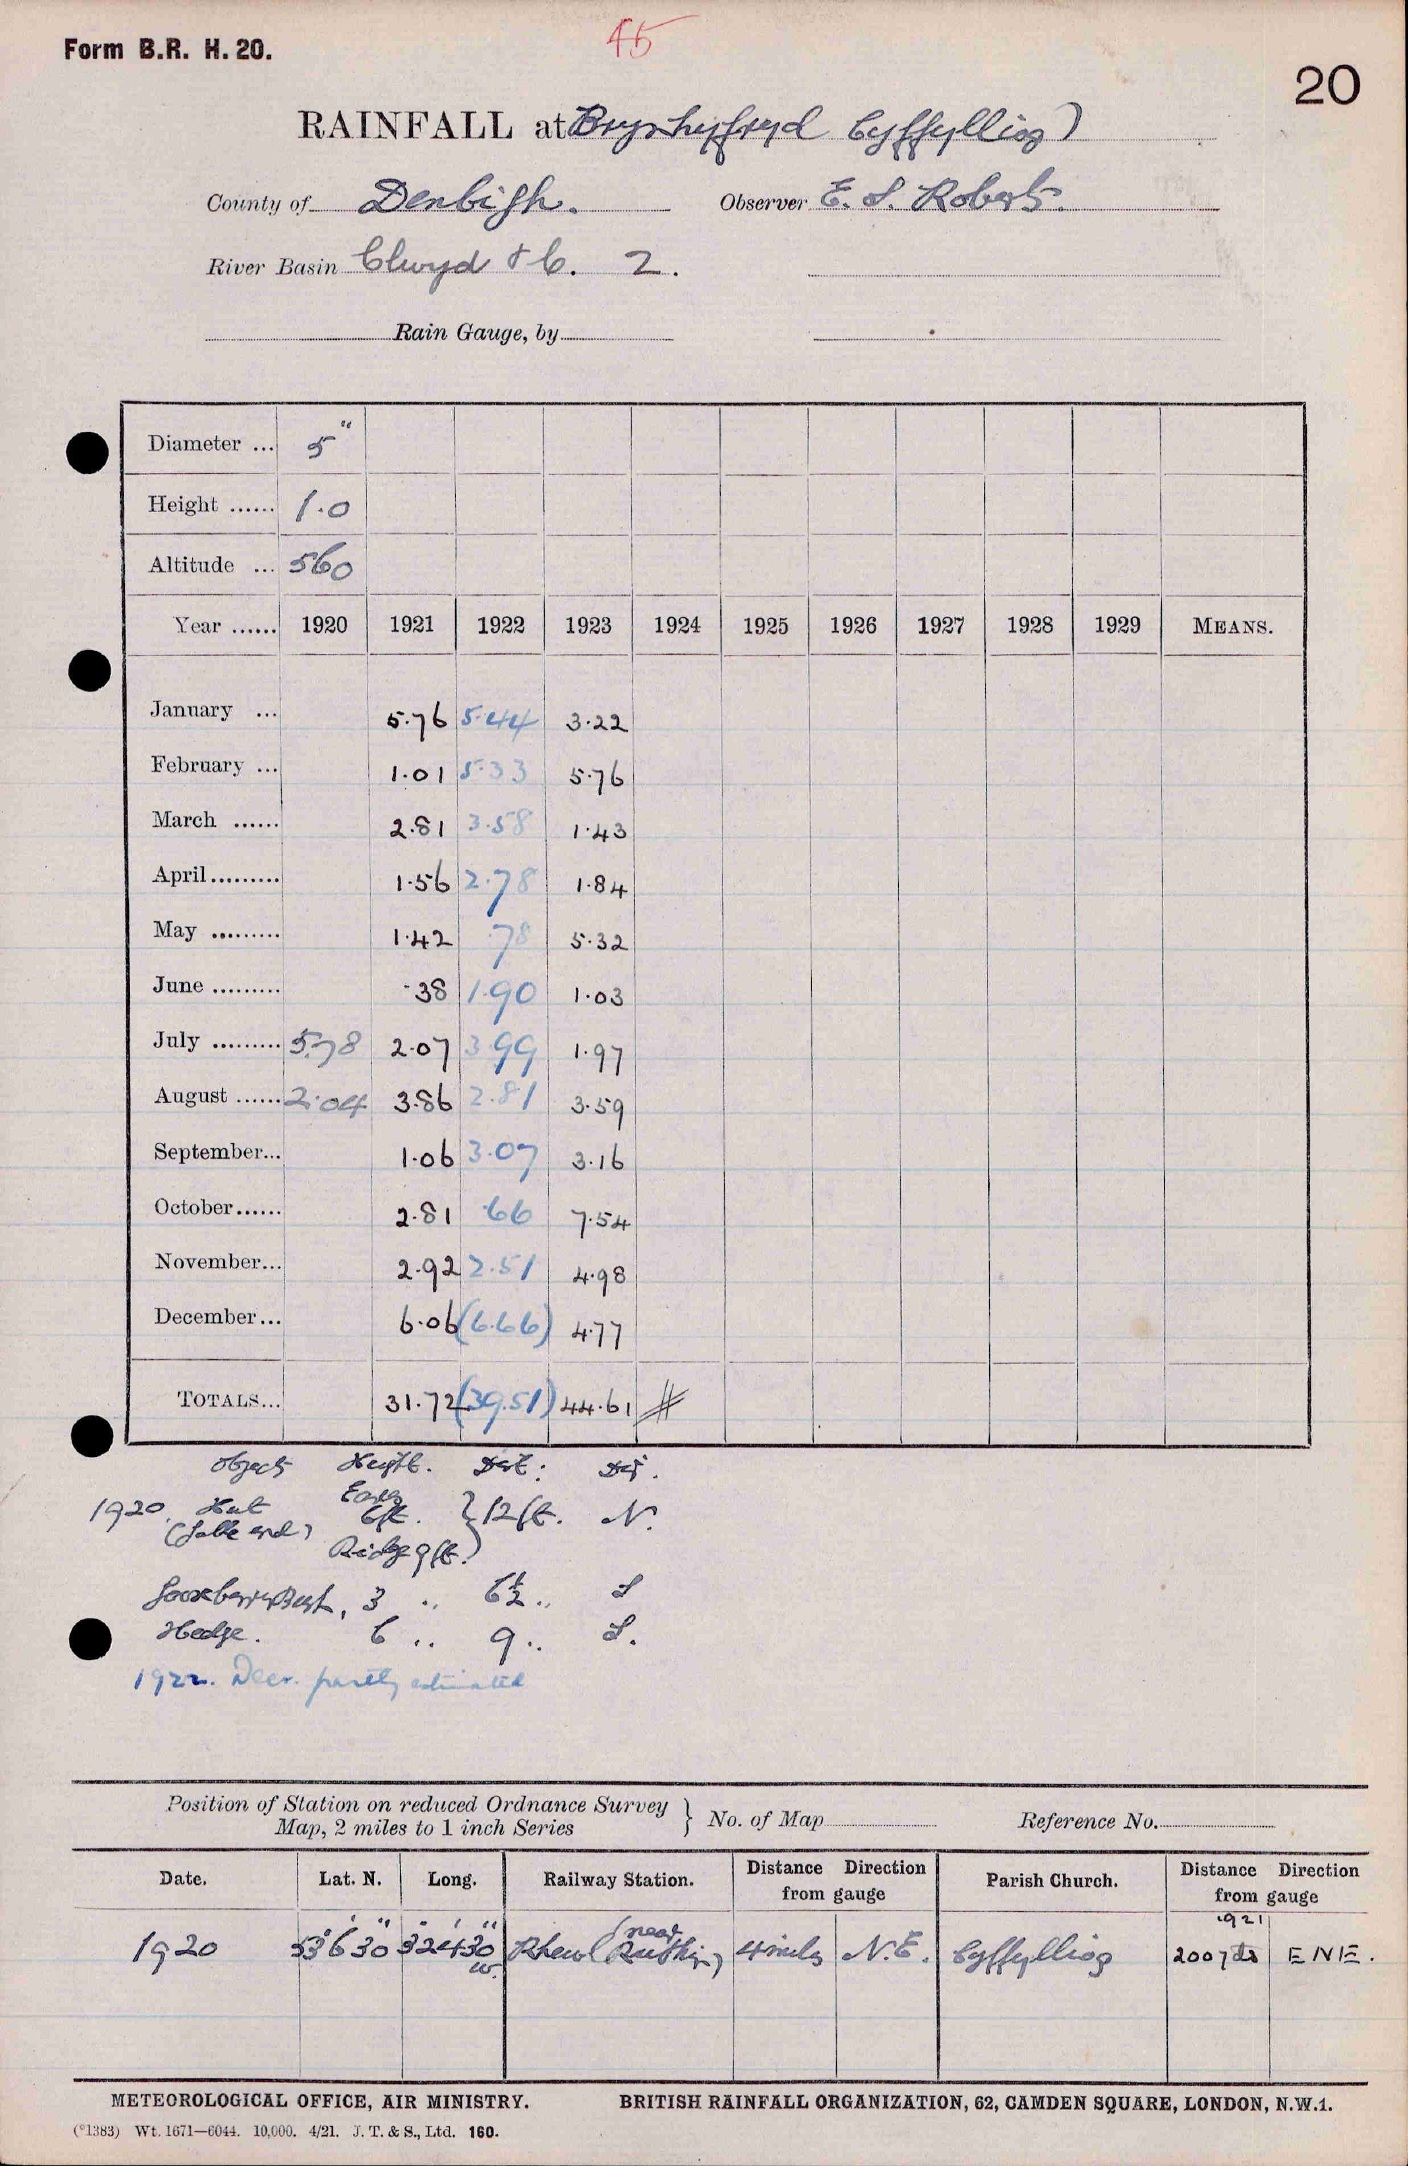 Form B.R. H. 20.
45
20
RAINFALL at Brynhyfryd Cyffylliog)
County of Denbigh. Observer E. S. Roberts.
River Basin Clwyd &c. 2.
Rain Gauge, by
Diameter ... 5"
Height ...... 1.0
Altitude ... 560
Year ...... 1920 1921 1922 1923 1924 1925 1926 1927 1928 1929 MEANS.
January ... 5.76 5.44 3.22
February ... 1.01 5.33 5.76
March ...... 2.81 3.58 1.43
April ......... 1.56 2.78 1.84
May ......... 1.42 .78 5.32
June ......... .38 1.90 1.03
July ......... 5.78 2.07 3.99 1.97
August ...... 2.04 3.86 2.81 3.59
September... 1.06 3.07 3.16
October...... 2.81 .66 7.54
November... 2.92 2.51 4.98
December... 6.06 (6.66) 4.77
TOTALS... 31.72 (39.51) 44.61 #
Objects Height. Dist: Dir.
1920. Hut Eaves 6ft. } 12 ft. N.
(Gable end) Ridge 9 ft.
Gooseberry Bush, 3 " 6½ " S
Hedge. 6 " 9 " S.
1922. Decr. partly estimated
Position of Station on reduced Ordnance Survey Map, 2 miles to 1 inch Series } No. of Map Reference No.
Date. Lat. N. Long. Railway Station. Distance Direction from gauge Parish Church. Distance Direction from gauge
1921
1920 53° 6' 30" 3° 24' 30" W. Rhewl (near Ruthin) 4 miles N.E. Cyffylliog 200 yds ENE.
METEOROLOGICAL OFFICE, AIR MINISTRY. BRITISH RAINFALL ORGANIZATION, 62, CAMDEN SQUARE, LONDON, N.W.1.
(*1383) Wt. 1671—6044. 10,000. 4/21. J. T. & S., Ltd. 160.